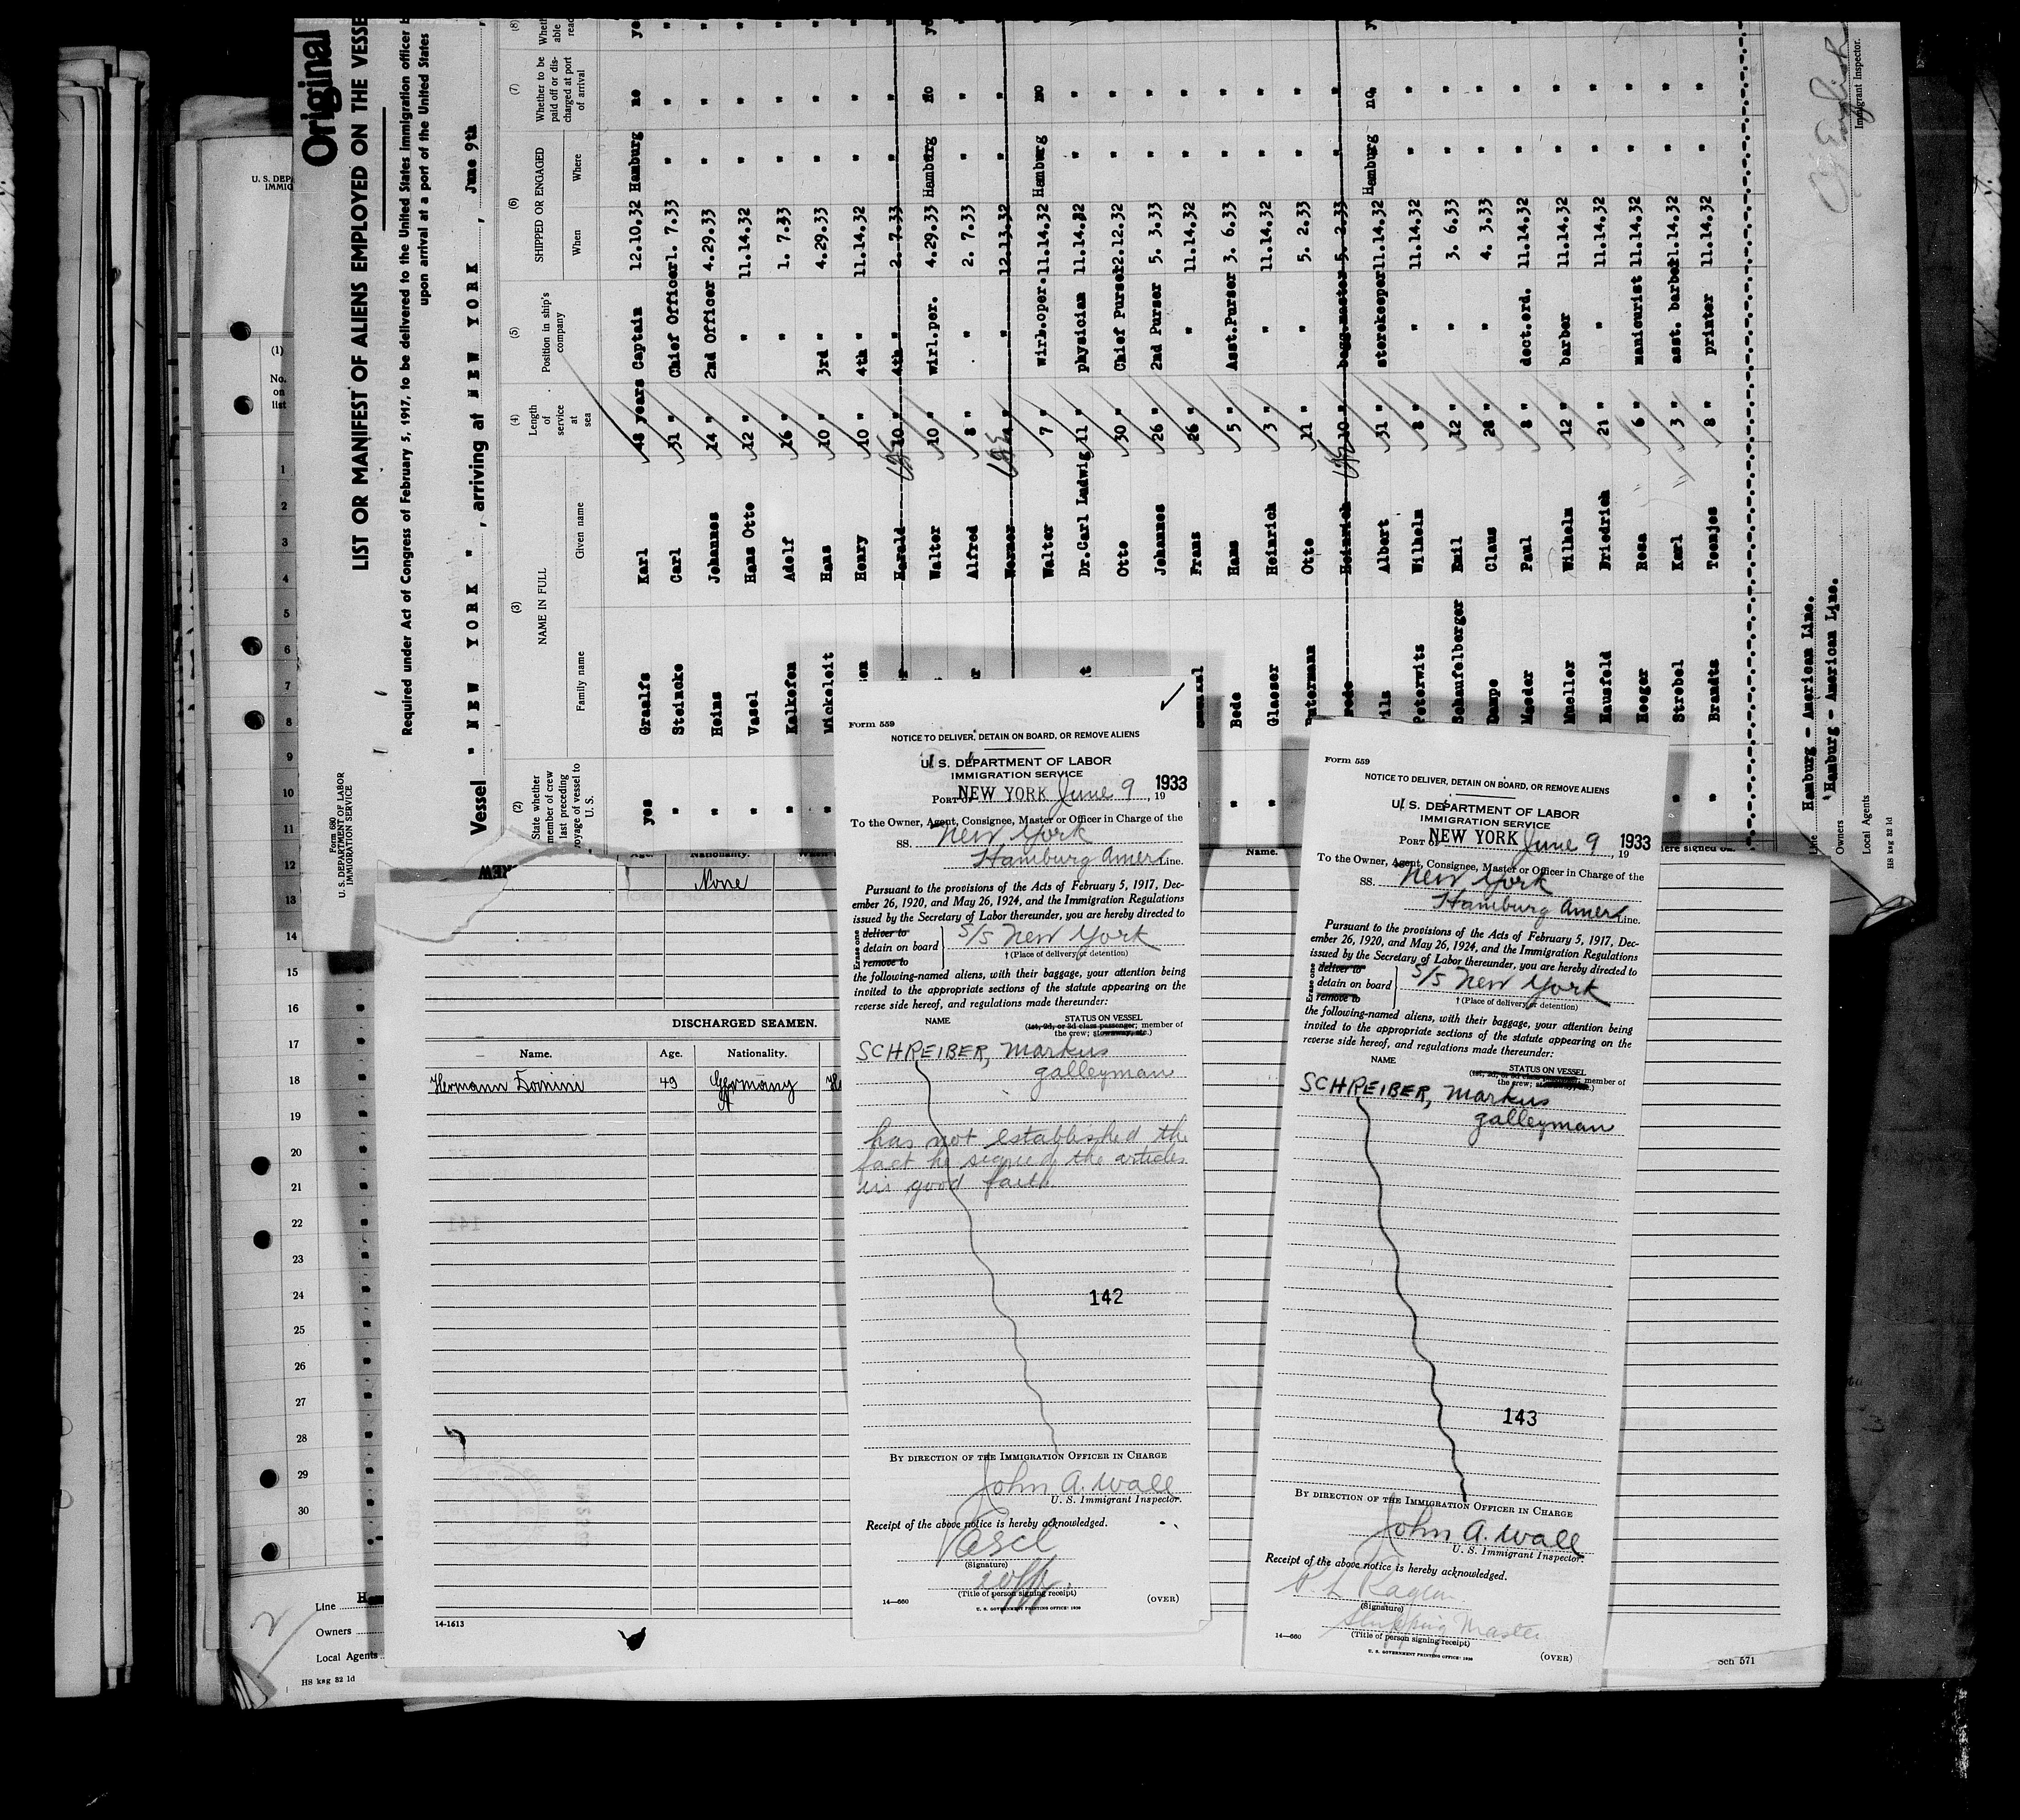 Original
LIST OR MANIFEST OF ALIENS EMPLOYED ON THE VESSE
Required under Act of Congress of February 5, 1917, to be delivered to the United States immigration officer b
upon arrival at a port of the United States
Form 680
U. S. DEPARTMENT OF LABOR
IMMIGRATION SERVICE
Vessel " NEW YORK ", arriving at NEW YORK, June 9th
(2) State whether member of crew last preceding voyage of vessel to U. S.
(3) NAME IN FULL
Family name Given name
(4) Length of service at sea
(5) Position in ship's company
(6) SHIPPED OR ENGAGED
When Where
(7) Whether to be paid off or discharged at port of arrival
(8)
yes Graalfs Karl 48 years Captain 12.10.32 Hamburg no
" Steincke Carl 31 " Chief Officer 1. 7.33 " "
" Heins Johannes 14 " 2nd Officer 4.29.33 " "
" Vasel Hans Otto 12 " " 11.14.32 " "
" Kalkofen Adolf 16 " " 1. 7.33 " "
" Mickeleit Hans 10 " 3rd " 4.29.33 " "
Henry 10 " 4th " 11.14.32 " "
Harald 10 " 4th " 2. 7.33 " "
Walter 10 " wirl.per. 4.29.33 Hamburg no
Alfred 8 " " 2. 7.33 " "
Werner " " 12.13.32 "
Walter 7 " Wirl.oper. 11.14.32 Hamburg no
Dr.Carl Ludwig 11 " physician 11.14.32 " "
Otto 30 " Chief Purser 2.12.32 " "
Johannes 26 " 2nd Purser 5. 3.33 " "
Frans 26 " " 11.14.32 " "
" Bede Hans 5 " Asst.Purser 3. 6.33 " "
" Glaeser Heinrich 3 " " 11.14.32 " "
Otto 11 " " 5. 2.33 " "
Heinrich 10 " bagg.master 5. 2.33 " "
Albert 31 " storekeeper 11.14.32 Hamburg no
Peterwits Wilhelm 8 " " 11.14.32 " "
Schaufelberger Emil 12 " " 3. 6.33 " "
Dampe Claus 28 " " 4. 3.33 " "
Maeder Paul 8 " dect.erd. 11.14.32 " "
Mueller Wilhelm 12 " barber 11.14.32 " "
Hausfeld Friedrich 21 " " 11.14.32 " "
Heeger Rosa 6 " manicurist 11.14.32 " "
" Strebel Karl 3 " asst. barber 11.14.32 " "
" Brandts Toonjes 8 " printer 11.14.32 " "
Line Hamburg - American Line.
Owners Hamburg - American Line.
Local Agents
HS ksg 32 ld
Immigrant Inspector.
U. S. DEPA
IMMIG
(1)
No.
on
list
1
2
3
4
5
6
7
8
9
10
11
12
13
14
15
16
17
18
19
20
21
22
23
24
25
26
27
28
29
30
Line
Owners
Local Agents
HS ksg 32 ld
2
Age. Nationality. Name.
None
DISCHARGED SEAMEN.
Name. Age. Nationality.
Hermann Domini 49 Germany
14-1613
Sch 571
Form 559
NOTICE TO DELIVER, DETAIN ON BOARD, OR REMOVE ALIENS
U. S. DEPARTMENT OF LABOR
IMMIGRATION SERVICE
PORT OF NEW YORK June 9, 1933
To the Owner, Agent, Consignee, Master or Officer in Charge of the
SS. New York
Hamburg Amer Line.
Pursuant to the provisions of the Acts of February 5, 1917, Dec-
ember 26, 1920, and May 26, 1924, and the Immigration Regulations
issued by the Secretary of Labor thereunder, you are hereby directed to
Erase one deliver to
detain on board S/S New York
remove to † (Place of delivery or detention)
the following-named aliens, with their baggage, your attention being
invited to the appropriate sections of the statute appearing on the
reverse side hereof, and regulations made thereunder:
NAME STATUS ON VESSEL
(1st, 2d, or 3d class passenger; member of
the crew; stowaway, etc.)
SCHREIBER, Markus
galleyman
has not established the
fact he signed the articles
in good faith.
142
BY DIRECTION OF THE IMMIGRATION OFFICER IN CHARGE
John A. Wall
U. S. Immigrant Inspector.
Receipt of the above notice is hereby acknowledged.
Vasel
(Signature)
(Title of person signing receipt)
14—660 U. S. GOVERNMENT PRINTING OFFICE: 1930 (OVER)
Form 559
NOTICE TO DELIVER, DETAIN ON BOARD, OR REMOVE ALIENS
U. S. DEPARTMENT OF LABOR
IMMIGRATION SERVICE
PORT OF NEW YORK June 9, 1933
To the Owner, Agent, Consignee, Master or Officer in Charge of the
SS. New York
Hamburg Amer Line.
Pursuant to the provisions of the Acts of February 5, 1917, Dec-
ember 26, 1920, and May 26, 1924, and the Immigration Regulations
issued by the Secretary of Labor thereunder, you are hereby directed to
Erase one deliver to
detain on board S/S New York
remove to † (Place of delivery or detention)
the following-named aliens, with their baggage, your attention being
invited to the appropriate sections of the statute appearing on the
reverse side hereof, and regulations made thereunder:
NAME STATUS ON VESSEL
(1st, 2d, or 3d class passenger; member of
the crew; stowaway, etc.)
SCHREIBER, Markus
galleyman
143
BY DIRECTION OF THE IMMIGRATION OFFICER IN CHARGE
John A. Wall
U. S. Immigrant Inspector.
Receipt of the above notice is hereby acknowledged.
(Signature)
Shipping Master
(Title of person signing receipt)
14—660 U. S. GOVERNMENT PRINTING OFFICE: 1930 (OVER)